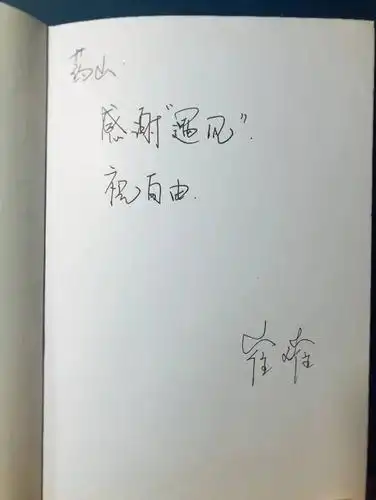 药山
感谢“遇见”.
祝自由.
崔崔